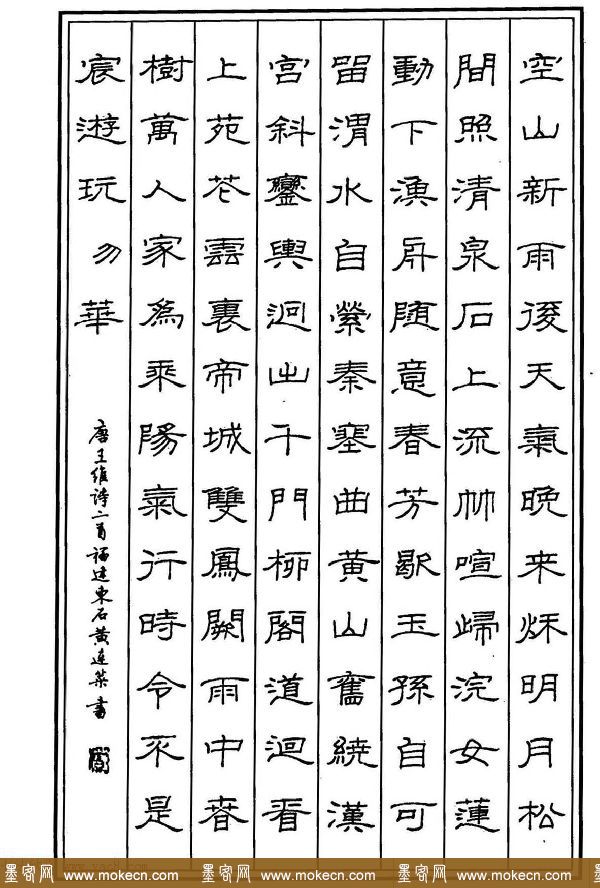 空山新雨後天氣晚来秌明月松
間照清泉石上流竹喧歸浣女蓮
動下漁舟随意春芳歇王孫自可
留渭水自縈秦塞曲黄山舊繞漢
宮斜鑾輿迥出千門柳閣道迴看
上苑花雲裏帝城雙鳳闕雨中春
樹萬人家為乘陽氣行時令不是
宸遊玩勿華
唐王维诗二首福建東石黄连書
墨客网 www.mokecn.com 墨客网 www.mokecn.com 墨客网 www.mokecn.com